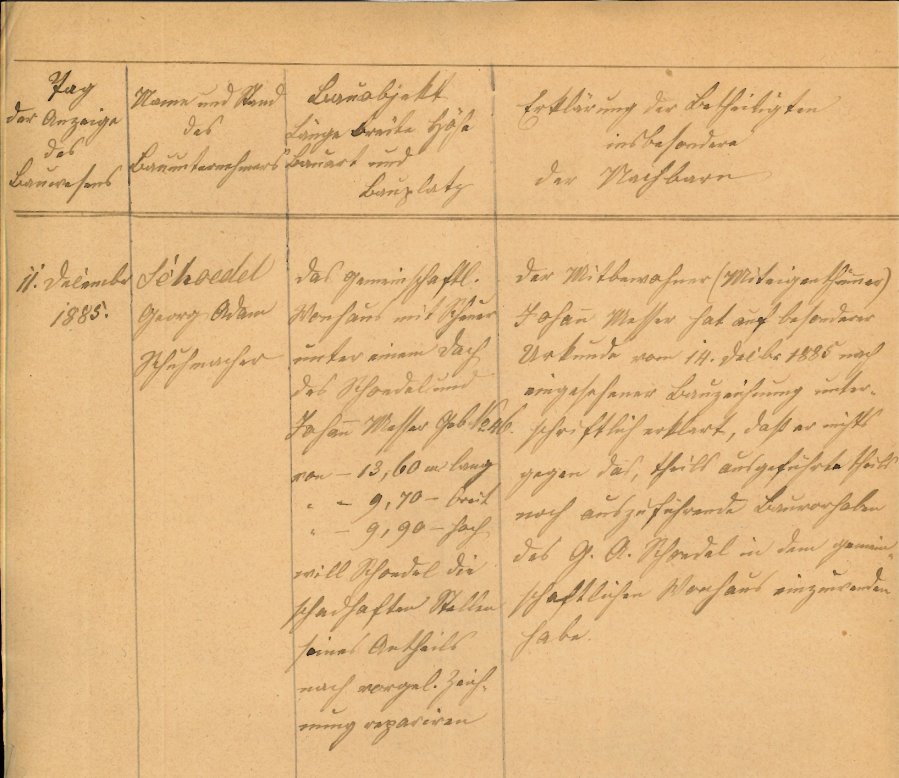 Tag
der Anzeige
des
Bauwesens
Name und Stand
des
Bauunternehmers
Bauobjekt
Länge breite Höhe
Bauart und
Bauplatz
Erklärung der Betheiligten
insbesondere
der Nachbarn
11. Decembr
1885.
Schoedel
Georg Adam
Schuhmacher
das gemeinschaftl.
Wonhaus mit Scheuer
unter einem Dach
des Schoedel und
Johann Messer Geb. № 246.
von - 13,60 m lang
" - 9,70 - breit
" - 9,90 - hoch
will Schoedel die
schadhaften Stellen
seines Antheils
nach vorgel. Zeich-
nung repariren
der Mitbewohner (Miteigenthümer)
Johann Messer hat auf besonderer
Urkunde vom 14. Decbr 1885 nach
eingesehener Bauzeichnung unter-
schriftlich erklärt, daß er nichts
gegen das, theils ausgeführte theils
noch auszuführende Bauvorhaben
des G. A. Schoedel in dem gemein-
schaftlichen Wonhaus einzuwenden
habe.